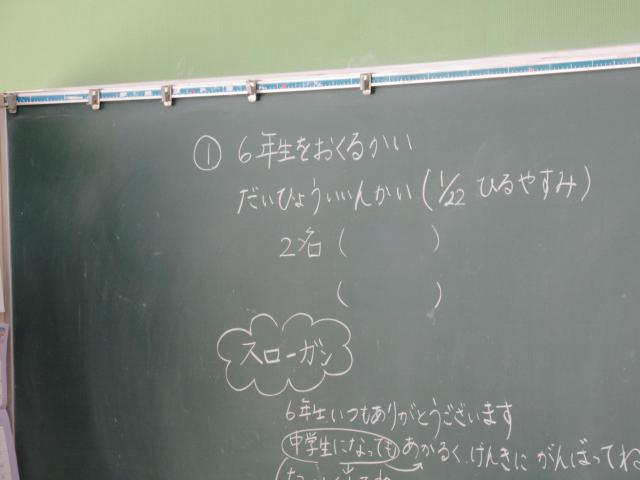 ① 6年生をおくるかい
だいひょういいんかい(1/22 ひるやすみ)
2名(　　　)
(　　　)
スローガン
6年生いつもありがとうございます
中学生になっても あかるく、げんきに がんばってね